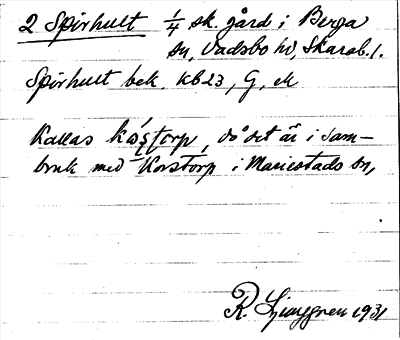 2 Spirhult 1/4 sk. gård i Berga
sn, Vadsbo hd, Skarab. l.
Spirhult bek. kb23, G, ek
Kallas torp, då det är i sam-
bruk med Korstorp i Mariestads sn,
R. Ljunggren 1931